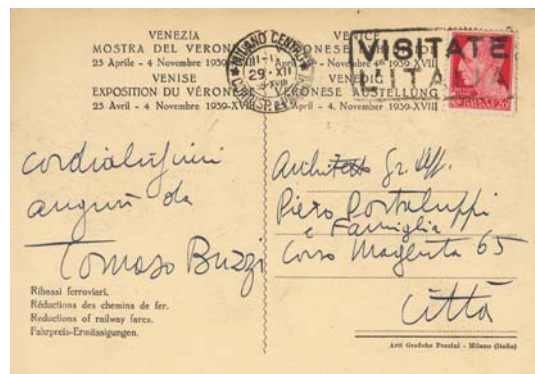 VENEZIA
MOSTRA DEL VERONESE
25 Aprile - 4 Novembre 1939-XVIII
VENISE
EXPOSITION DU VÉRONÈSE
25 Avril - 4 Novembre 1939-XVIII
VENICE
VERONESE EXHIBITION
4th
VENEDIG
VERONESE AUSTELLUNG
April - 4 Novembre 1939-XVIII
MILANO CENTRO
29 · XII
VISITATE
L'ITALIA
cordialissimi
auguri da
Tomaso Buzzi
Architetto Gr. Uff.
Piero Portaluppi
e Famiglia
Corso Magenta 65
Città
Ribassi ferroviari.
Réductions des chemins de fer.
Reductions of railway fares.
Fahrpreis-Ermässigungen.
Arti Grafiche Pezzini - Milano (Italia)